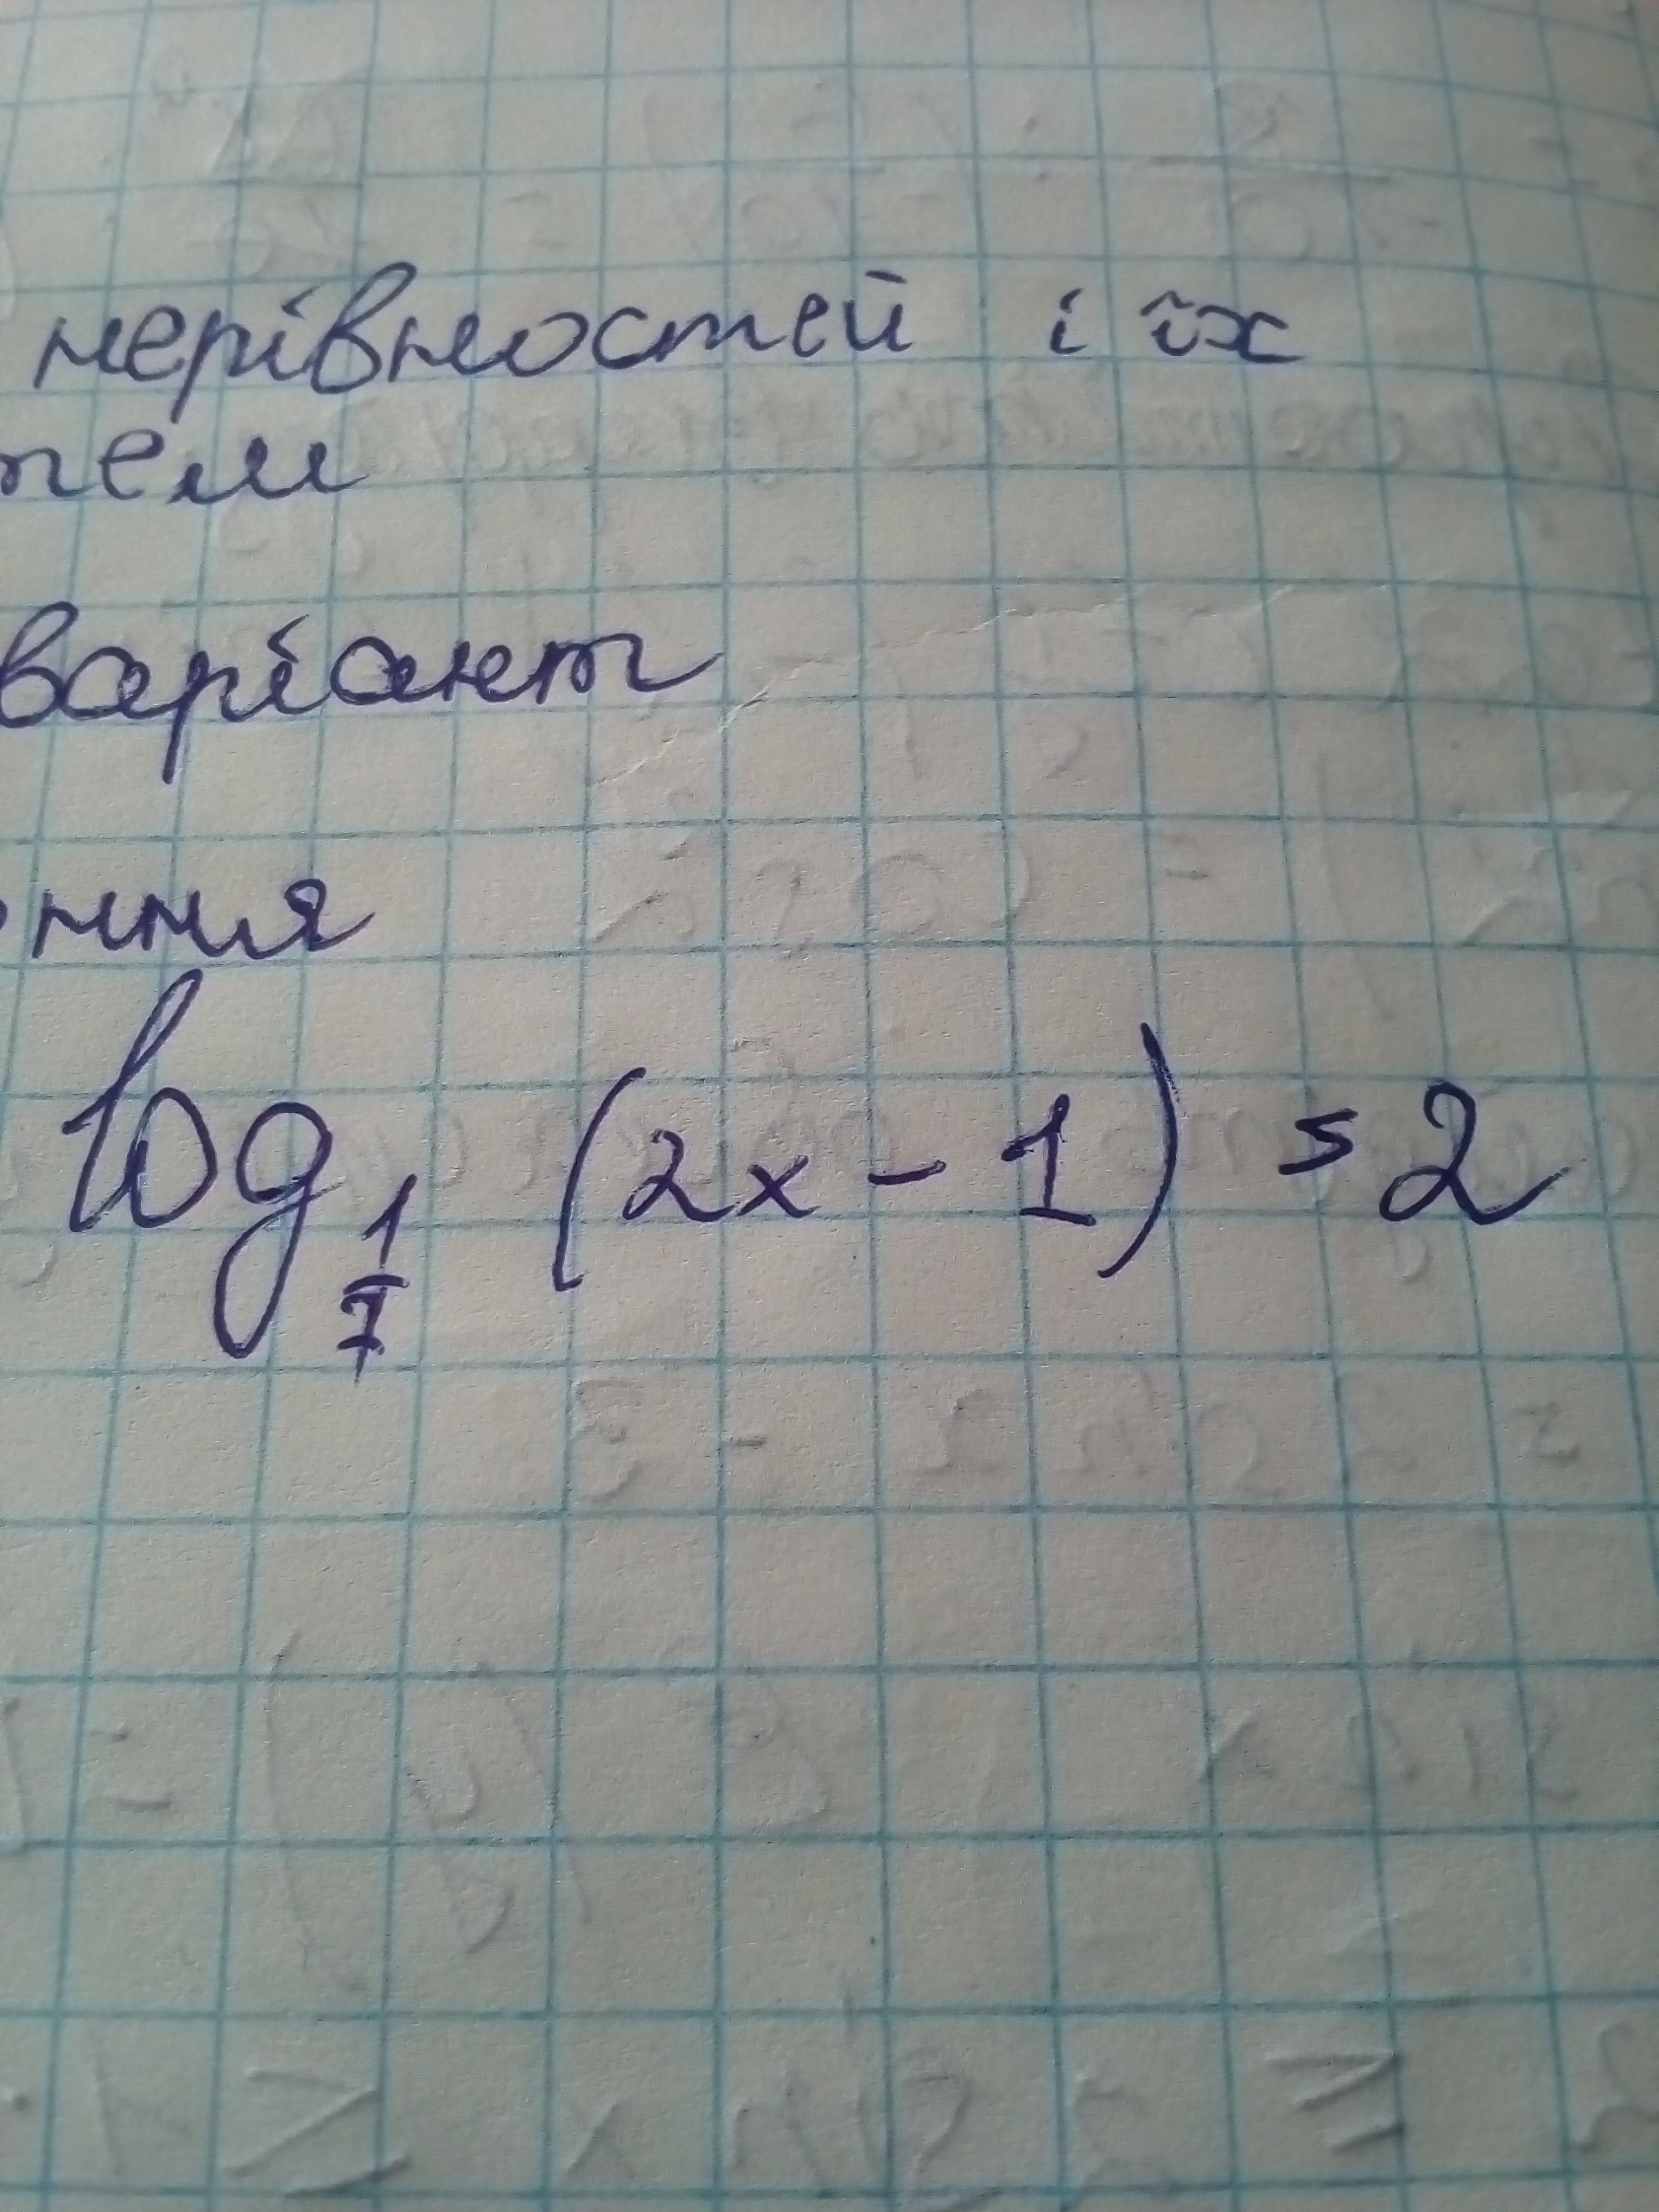 нерівностей і їх
варіант
ння
log 1/7 (2x - 1) = 2